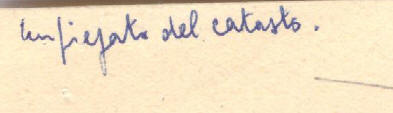 Impiegato del catasto.